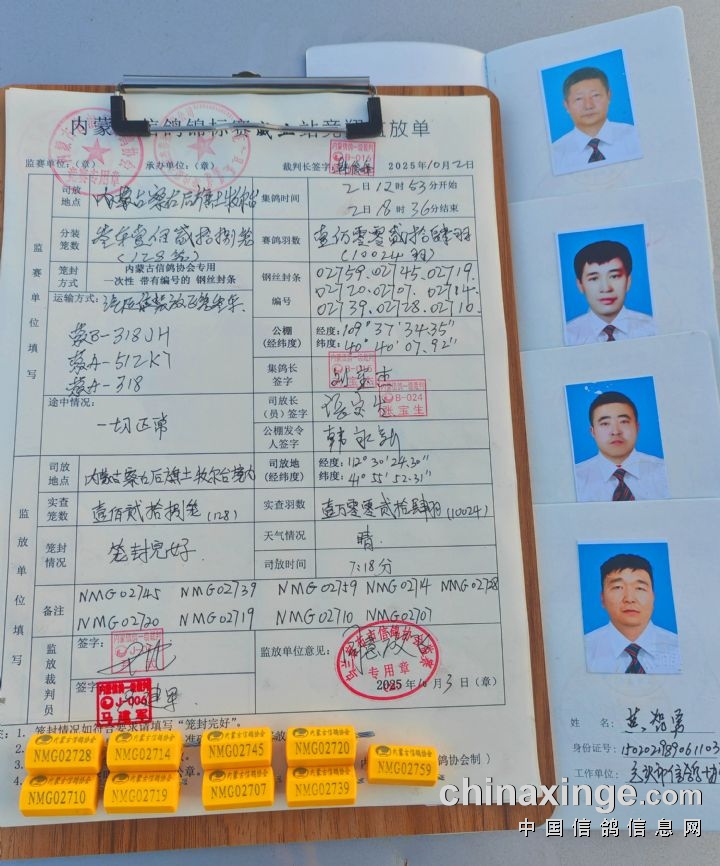 内蒙古信鸽锦标赛威力站竞翔监放单
监赛单位：（章） 承办单位：（章） 裁判长签字 2025年10月2日
监赛单位填写
司放地点 内蒙古察右后旗土牧尔台 集鸽时间 2日12时53分开始
2日18时36分结束
分装笼数 (128笼) 赛鸽羽数 (10024羽)
笼封方式 内蒙古信鸽协会专用
一次性 带有编号的 钢丝封条
钢丝封条编号 02759.02745.02719.
02720.02707.02714
02739.02728.02710.
运输方式：
蒙B-318JH
蒙A-512K7
蒙A-318
公棚（经纬度） 经度：109°37'34.35"
纬度：40°40'07.92"
集鸽长签字
途中情况：
一切正常
司放长（员）签字 张宝生
B-024
张宝生
公棚发令人签字
监放单位填写
司放地点 内蒙古察右后旗土牧尔台境内 司放地（经纬度） 经度：112°30'24.30"
纬度：41°55'52.31"
实查笼数 壹佰贰拾捌笼(128) 实查羽数 壹万零零贰拾肆羽(10024)
笼封情况 笼封完好 天气情况 晴
司放时间 7:18分
备注 NMG02745 NMG02739 NMG02759 NMG02714 NMG02728
NMG02720 NMG02719 NMG02710 NMG02707
监放裁判员 签字：
签字
J-006
马建军
监放单位意见：
专用章
2025年10月3日（章）
笼封情况如符合要求请填写“笼封完好”。
NMG02728 NMG02714 NMG02745 NMG02720 NMG02759
NMG02710 NMG02719 NMG02707 NMG02739
姓 名：
身份证号：
工作单位：
chinaxinge.com
中国信鸽信息网